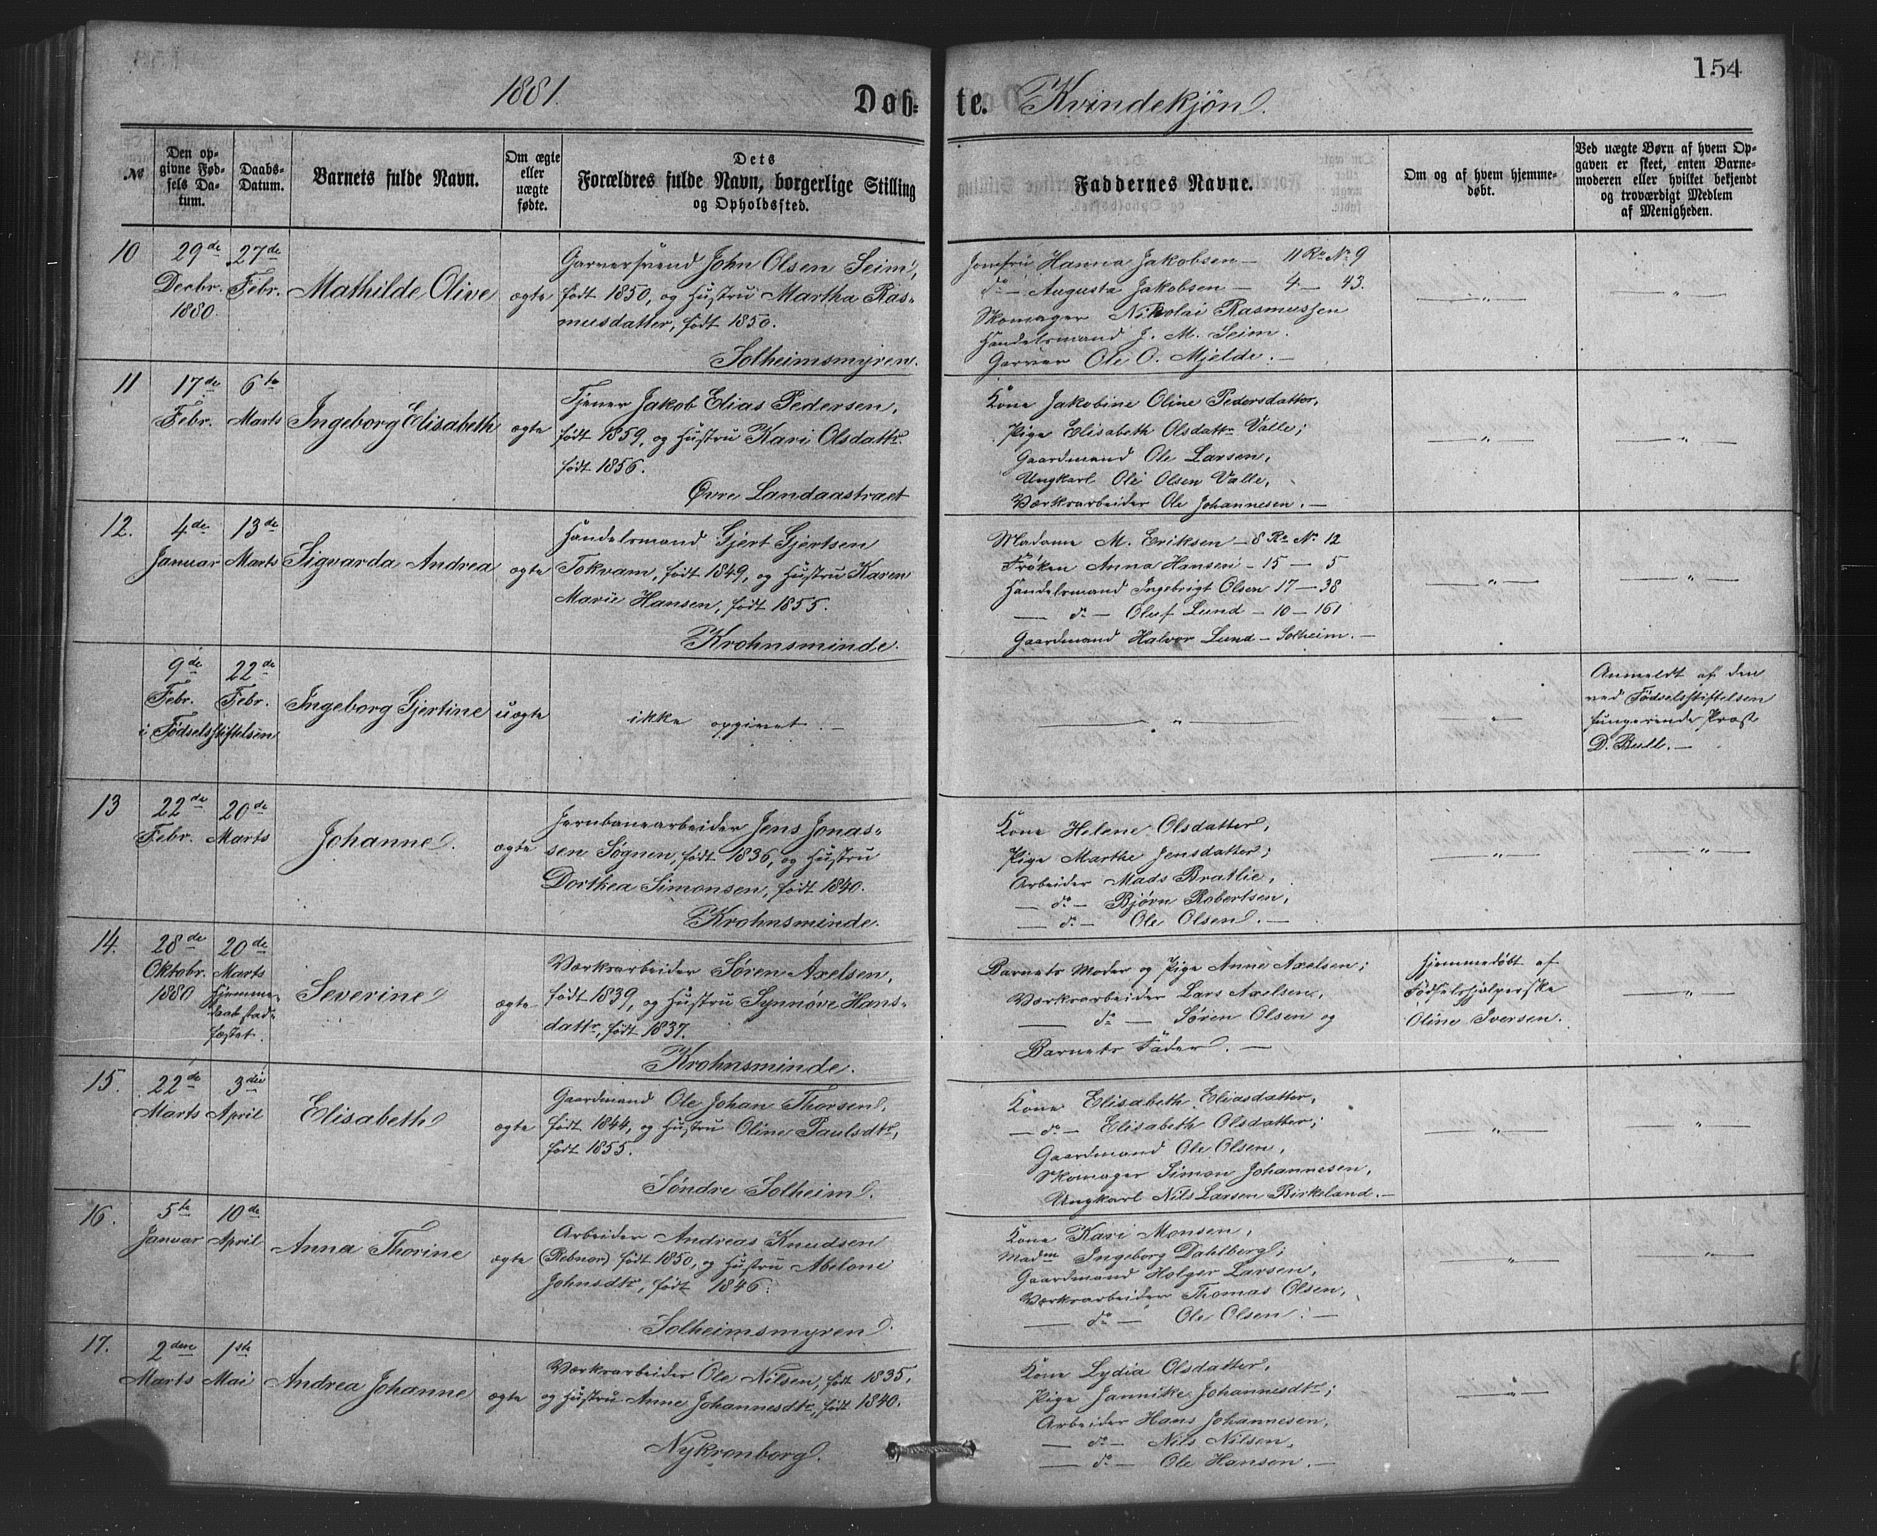 154
1881.
Døb-te. Kvindekjøn.
№
Den op-
givne Fød-
sels Da-
tum.
Daabs-
Datum.
Barnets fulde Navn.
Om ægte
eller
uægte
fødte.
Dets
Forældres fulde Navn, borgerlige Stilling
og Opholdssted.
Faddernes Navne.
Om og af hvem hjemme-
døbt.
Ved uægte Børn af hvem Op-
gaven er skeet, enten Barne-
moderen eller hvilket bekjendt
og troværdigt Medlem
af Menigheden.
10
29de
Decbr.
1880.
27de
Febr.
Mathilde Olive
ægte
Garversvend John Olsen Seim,
født 1850, og Hustru Martha Ras-
musdatter, født 1850.
Solheimsmyren.
Jomfru Hanna Jakobsen — 11 Ro No 9
do — Augusta Jakobsen — 4 — 43.
Skomager Nikolai Rasmussen
Handelsmand J. M. Seim.
Garver Ole O. Mjelde. —
— " —
— " —
11
17de
Febr.
6te
Marts
Ingeborg Elisabeth
ægte
Tjener Jakob Elias Pedersen,
født 1859, og Hustru Kari Olsdattr
født 1856.
Øvre Landaastræet
Kone Jakobine Oline Pedersdatter,
Pige Elisabeth Olsdattr Valle;
Gaardmand Ole Larsen,
Ungkarl Ole Olsen Valle,
Værksarbeider Ole Johannesen. —
— " —
— " —
12.
4de
Januar
13de
Marts
Sigvarda Andrea
ægte
Handelsmand Gjert Gjertsen
Tokvam, født 1849, og Hustru Karen
Marie Hansen, født 1855.
Krohnsminde.
Madame M. Eriksen — 8 Ro No 12
Frøken Anna Hansen — 15 — 5
Handelsmand Ingebrigt Olsen 17 — 38
— do — Oluf Lund — 10 — 161
Gaardmand Halvor Lund — Solheim. —
— " —
— " —
9de
Febr.
22de
Febr.
i Fødselsstiftelsen
Ingeborg Gjertine
uægte
ikke opgivet. —
— " —
"
Anmeldt af den
ved Fødselsstiftelsen
fungerende Præst
D. Bull. —
13
22de
Febr.
20de
Marts
Johanne.
ægte
Jernbanearbeider Jens Jonas-
sen Søgnen, født 1836, og Hustru
Dorthea Simonsen, født 1840.
Krohnsminde.
Kone Helene Olsdatter,
Pige Marthe Jensdatter;
Arbeider Mads Bratlie,
— do — Bjørn Robertsen,
— do — Ole Olsen. —
— " —
— " —
14.
28de
Oktobr.
1880
20de
Marts
Hjemme-
daab stad-
fæstet.
Severine
ægte
Værksarbeider Søren Axelsen,
født 1839, og Hustru Synnøve Hans-
dattr, født 1837.
Krohnsminde.
Barnets Moder og Pige Anne Axelsen;
Værksarbeider Lars Axelsen,
— do — Søren Olsen og
Barnets Fader. —
Hjemmedøbt af
Fødselshjælperske
Oline Iversen.
— " —
15.
22de
Marts
3die
April
Elisabeth
ægte
Gaardmand Ole Johan Thorsen,
født 1844, og Hustru Oline Paulsdtr,
født 1855.
Søndre Solheim.
Kone Elisabeth Eliasdatter,
— do — Elisabeth Olsdatter;
Gaardmand Ole Olsen,
Skomager Simon Johannesen,
Ungkarl Nils Larsen Birkeland. —
— " —
— " —
16.
5te
Januar
10de
April
Anna Thorine
ægte
Arbeider Andreas Knudsen
(Rebnor) født 1850, og Hustru Abelone
Johnsdtr, født 1846.
Solheimsmyren.
Kone Kari Monsen,
Madm Ingeborg Dahlberg;
Gaardmand Holger Larsen,
Værksarbeider Thomas Olsen,
— do — Ole Olsen. —
— " —
"
17.
2den
Marts
1ste
Mai
Andrea Johanne
ægte
Værksarbeider Ole Nilsen, født 1835,
og Hustru Anne Johannesdtr, født 1840.
Nykronborg.
Kone Lydia Olsdatter,
Pige Jannike Johannesdtr;
Arbeider Hans Johannesen,
— do — Nils Nilsen,
— do — Ole Hansen. —
— " —